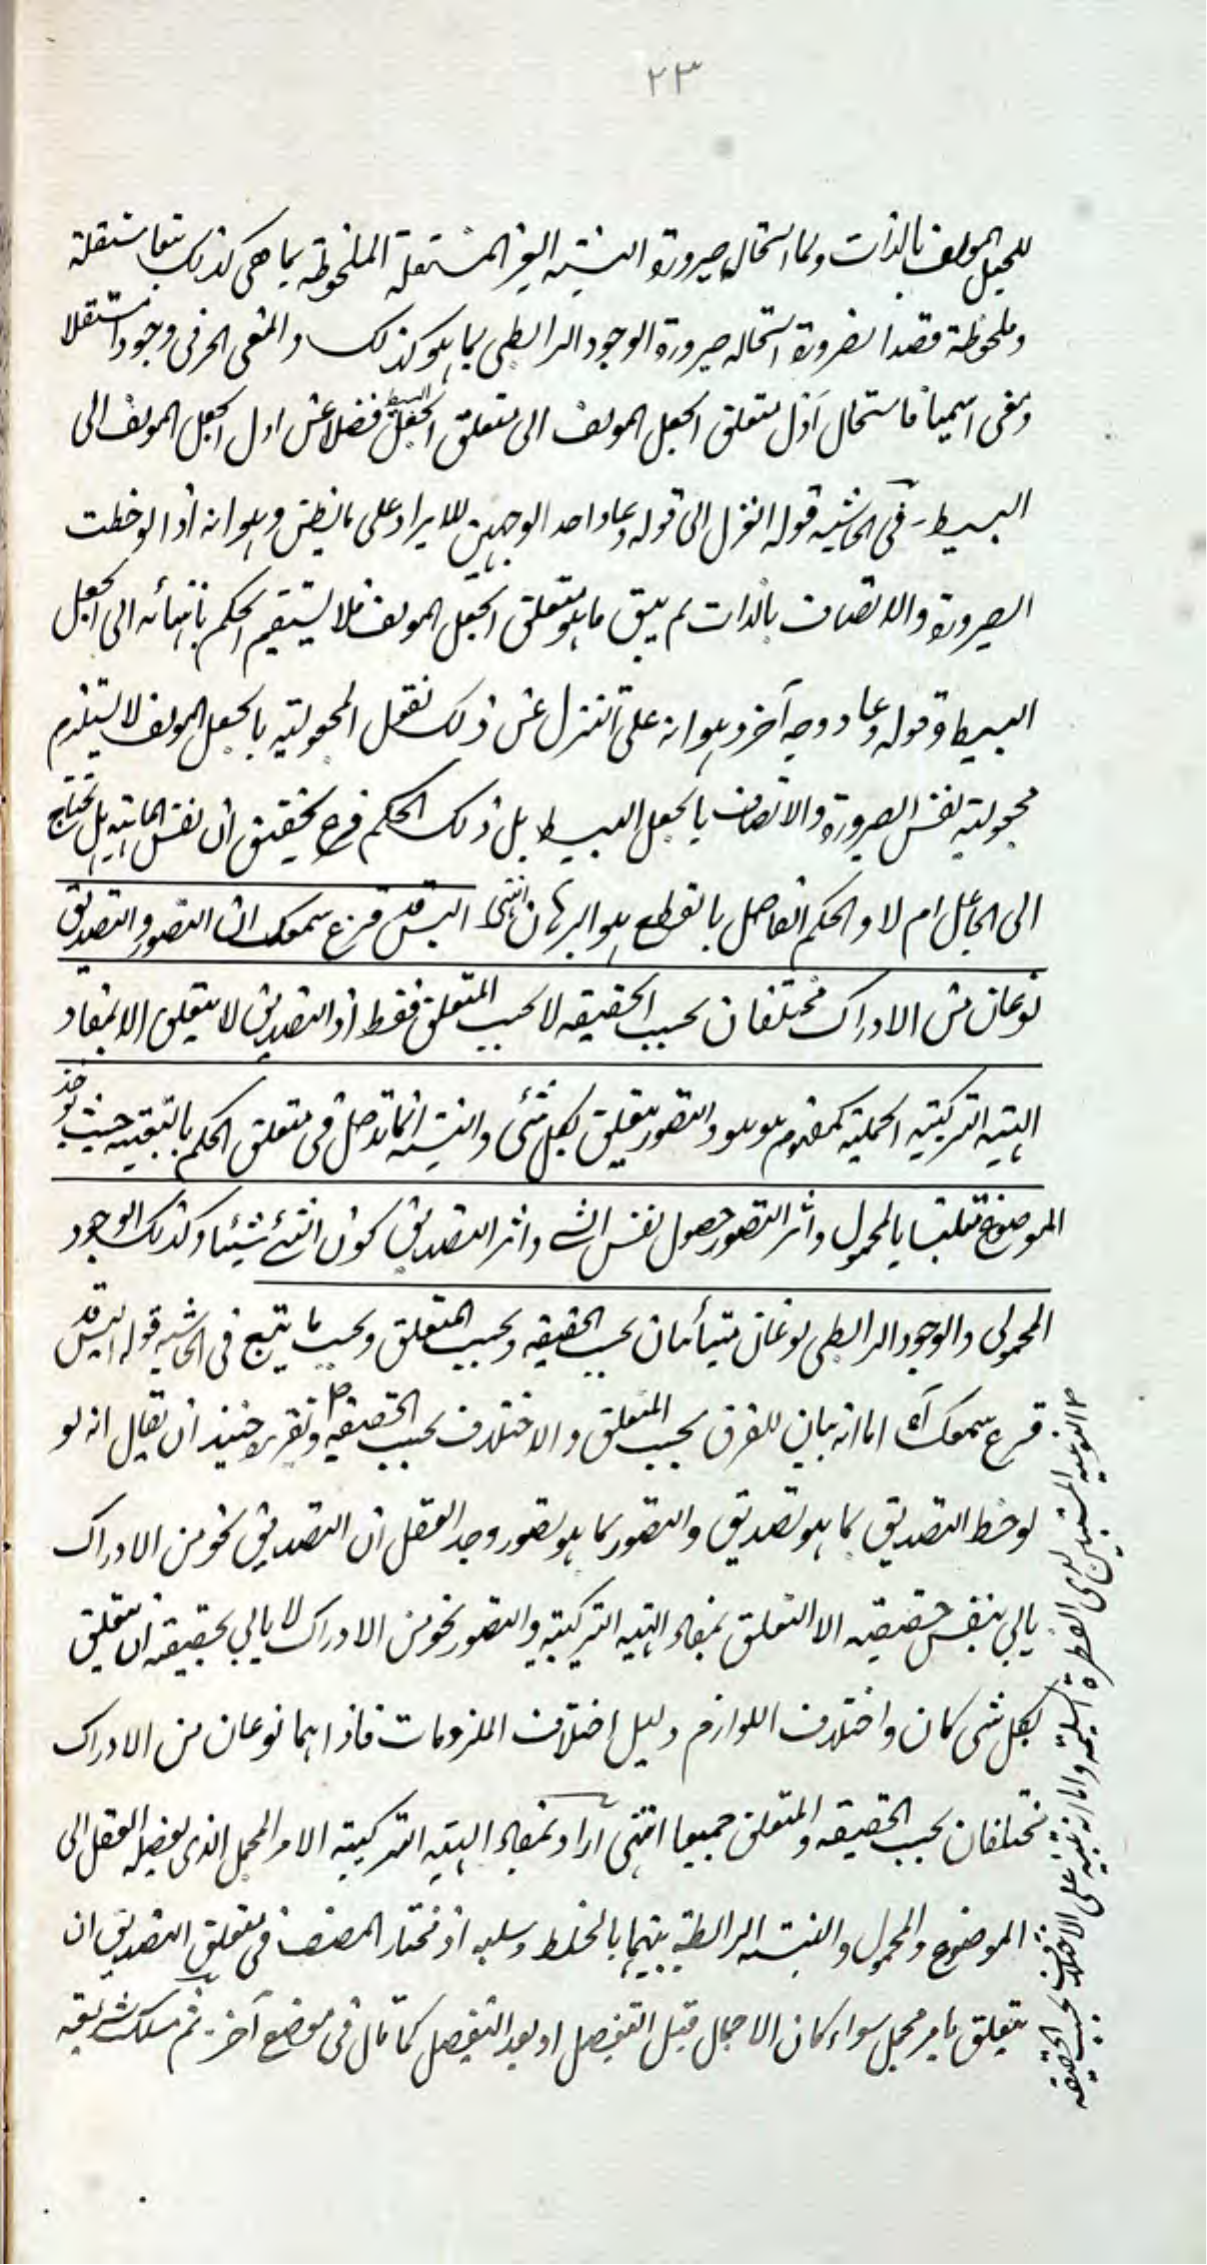 ٢٣
للجعل المولف بالذات ولما استحال صيرورة النسبته الغير المستقلة الملحوظة بما هى كذلك تبعا مستقلة
وملحوظة قصدا لضرورة استحاله صيرورة الوجود الرابطى بما هو كذلك والمعنى الحرفى وجودا مستقلا
ومعنى اسميا فاستحال اذن متعلق الجعل المولف الى متعلق الجعل البسيط فضلا عن اول الجعل المولف الى
البسيط - فى الحاشيه قوله انعزل الى قوله وعاد احد الوجهين للايراد على ما يظن وهو انه اذا لوحظت
الصيرورة والاتصاف بالذات لم يبق ما هو متعلق الجعل المولف فلا يستقيم الحكم بانتهائه الى الجعل
البسيط وقوله وعاد وجه آخر وهو انه على التنزل عن ذلك نقول المجعولية بالجعل المولف لا يستلزم
مجعولية نفس الصيرورة والاتصاف بالجعل البسيط بل ذلك الحكم فرع تحقيق ان نفس الماهية هل تحتاج
الى الجاعل ام لا والحكم الفاصل بالقطع هو البرهان انتهى اليس قد قرع سمعك ان التصور والتصديق
نوعان من الادراك مختلفان بحسب الحقيقه لا بحسب المتعلق فقط اذ التصديق لا يتعلق الا بمفاد
الهيئة التركيبية الحملية كمفهوم هو هو والتصور يتعلق بكل شئ والنسبته انما تدخل فى متعلق الحكم بالتبعيه حيث يوخذ
الموضوع متلبسا بالمحمول واثر التصور حصول نفس الشئ واثر التصديق كون الشئ شيئا وكذلك الوجود
المحمولى والوجود الرابطى نوعان متبائنان بحسب الحقيقه وبحسب المتعلق وبحسب ما يتبع فى الحاشيه قوله اليس قد
قرع سمعك آه اما انه بيان للفرق بحسب المتعلق والاختلاف بحسب الحقيقه وتقريره حينئذ ان يقال انه لو
لوحظ التصديق بما هو تصديق والتصور بما هو تصور وجد العقل ان التصديق نحو من الادراك
يابى بنفس حقيقته الا التعلق بمفاد الهيئة التركيبية والتصور نحو من الادراك لا يابى بحقيقته ان يتعلق
بكل شى كان واختلاف اللوازم دليل اختلاف الملزومات فاذا هما نوعان من الادراك
مختلفان بحسب الحقيقه والمتعلق جميعا انتهى اراد بمفاد الهيئة التركيبية الامر المجمل الذى يفصله العقل الى
الموضوع والمحمول والنسبته الرابطة بينهما بالخلط وسلبه اذ مختار المصنف فى متعلق التصديق ان
يتعلق بامر مجمل سواء كان الاجمال قبل التفصيل او بعد التفصيل كما قال فى موضع آخر - ثم مسلك شريعه
النوعيه لدى الفطرة السليمة واما انه تنبيه على الاختلاف بحسب الحقيقه